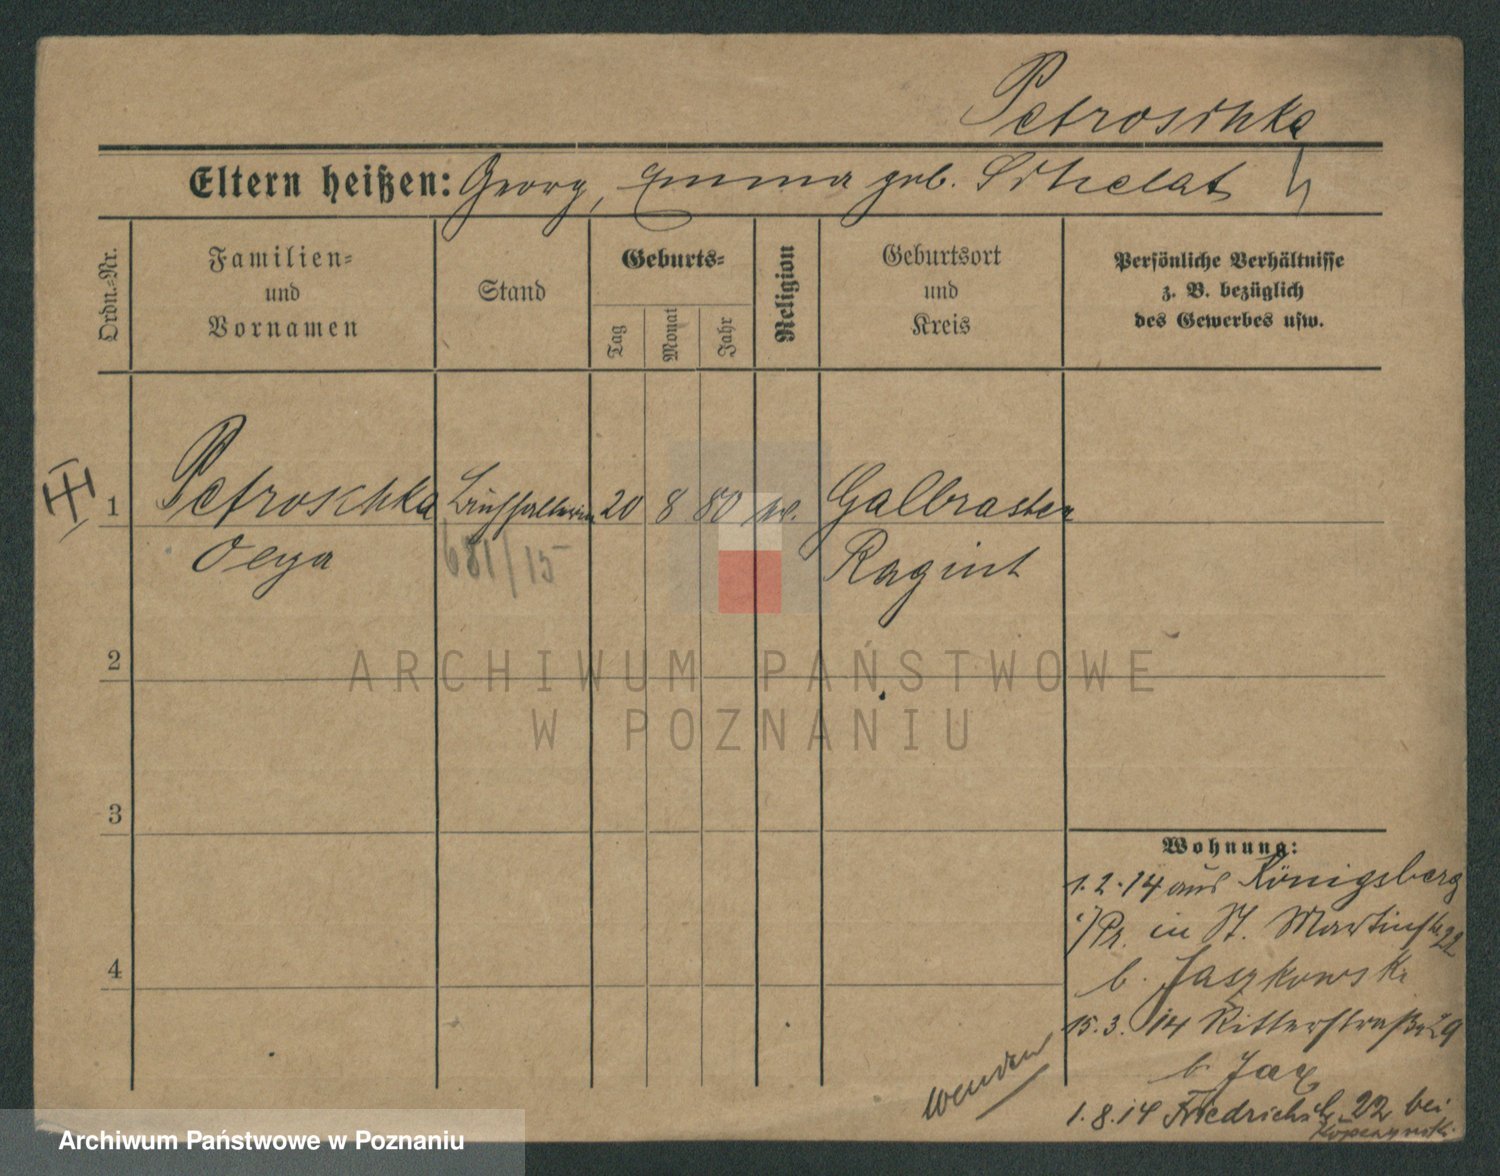 Petroschka
Eltern heißen: Georg, Emma geb.
Ordn.-Nr.
Familien-
und
Vornamen
Stand
Geburts-
Tag
Monat
Jahr
Religion
Geburtsort
und
Kreis
Persönliche Verhältnisse
z. B. bezüglich
des Gewerbes usw.
1
Petroschka
Buchhalterin
20
8
80
Galbrasten
Ragnit
681/15
2
ARCHIWUM PAŃSTWOWE
W POZNANIU
3
4
Wohnung:
1.2.14 aus Königsberg
i/Pr. in St. Martinstr. 22
b. Jaszkowski
15.3.14 Ritterstraße 29
b. Jax
1.8.14 Friedrichstr. 22 bei
wenden
Archiwum Państwowe w Poznaniu